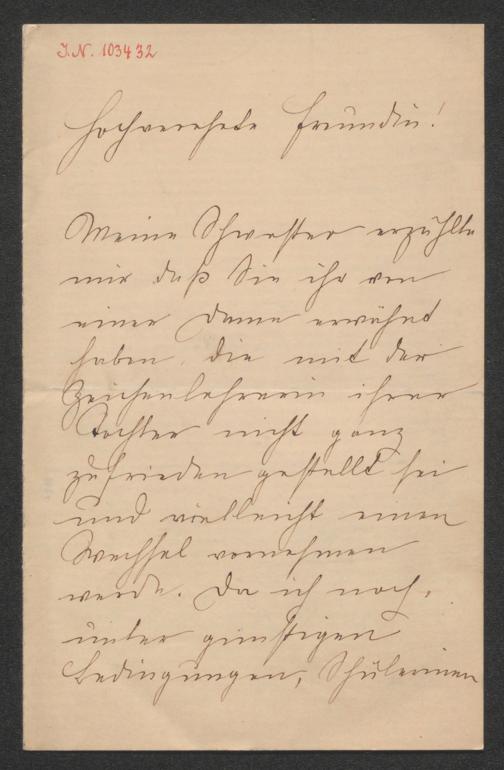 I.N. 103432
Hochverehrte Freundin!
Meine Schwester erzählte
mir daß Sie ihr von
einer Dame erwähnt
haben, die mit der
Zeichenlehrerin ihrer
Tochter nicht ganz
zufrieden gestellt sei
und vielleicht einen
Wechsel vornehmen
werde. Da ich noch,
unter günstigen
Bedingungen, Schülerinen